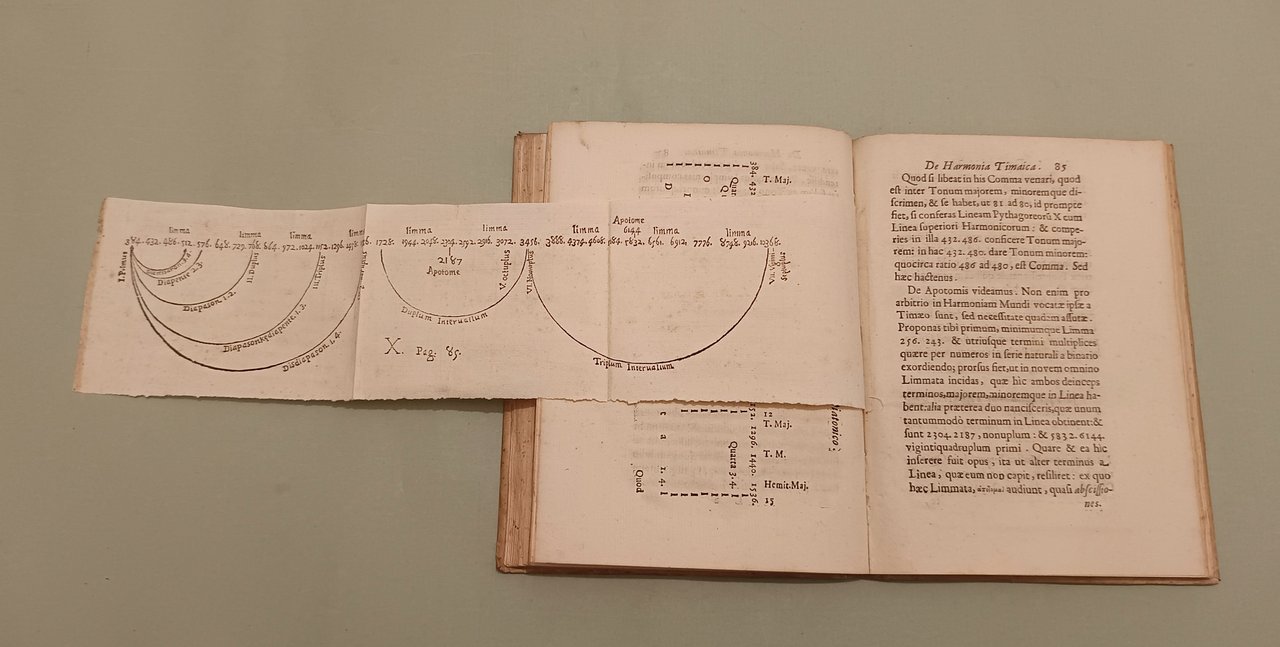 limma limma limma limma limm
384. 432. 486. 512. 576. 648. 729. 768. 864. 972. 1024. 1152. 1296.
I. Primus
Diapente 2.3.
Diapason. 1. 2.
II. Duplus
III. Triplus
Diapason & diapente. 1. 3.
Disdiapason. 1. 4.
limma limma
1728. 1944. 2048. 2304. 2592. 2916. 3072. 3456.
2187
Apotome
Duplum Interuallum
V. Octuplus
X. Pag: 85.
Apotome
6144
limma limma limma
3888. 4374. 4608. 5832. 6561. 6912. 7776. 8748. 9216. 10368.
Triplum Interuallum
384. 432
T. Maj.
O
D
I
1296. 1440. 1536.
12
T. Maj.
T. M.
Hemit. Maj.
15
Quarta 3. 4.
c
a
1. 4.
Quod
iatonico:
De Harmonia Timaica. 85
Quod si libeat in his Comma venari, quod
est inter Tonum majorem, minoremque di-
scrimen, & se habet, ut 81 ad 80, id prompte
fiet, si conferas Lineam Pythagoreorũ X cum
Linea superiori Harmonicorum: & compe-
ries in illa 432. 486. conficere Tonum majo-
rem: in hac 432. 480. dare Tonum minorem:
quocirca ratio 486 ad 480, est Comma. Sed
hæc hactenus.
De Apotomis videamus. Non enim pro
arbitrio in Harmoniam Mundi vocatæ ipsæ a
Timæo sunt, sed necessitate quadam assutæ.
Proponas tibi primum, minimumque Limma
256. 243. & utriusque termini multiplices
quære per numeros in serie naturali a binario
exordiendo; prorsus fiet, ut in novem omnino
Limmata incidas, quæ hic ambos deinceps
terminos, majorem, minoremque in Linea ha-
bent: alia præterea duo nancisceris, quæ unum
tantummodò terminum in Linea obtinent: &
sunt 2304. 2187, nonuplum: & 5832. 6144.
vigintiquadruplum primi. Quare & ea hic
inserere fuit opus, ita ut alter terminus a
Linea, quæ eum non capit, resiliret: ex quo
hæc Limmata, ἀποτομαὶ audiunt, quasi abscissio-
nes.